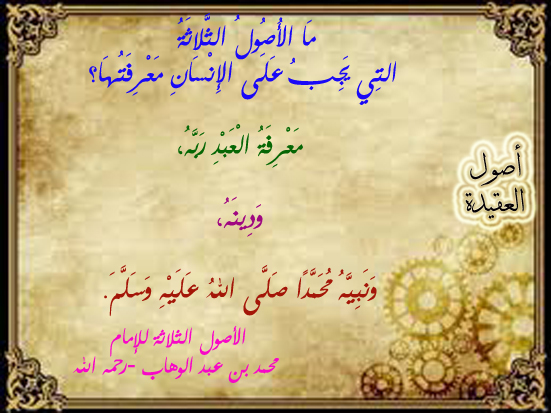 مَا الأُصُولُ الثَّلاثَةُ
التِي يَجِبُ عَلَى الإِنْسَانِ مَعْرِفَتُهَا؟
مَعْرِفَةُ الْعَبْدِ رَبَّهُ،
أصول
العقيدة
وَدِينَهُ،
وَنَبِيَّهُ مُحَمَّدًا صَلَّى اللهُ عَلَيْهِ وَسَلَّمَ.
الأصول الثلاثة للإمام
محمد بن عبد الوهاب -رحمه الله